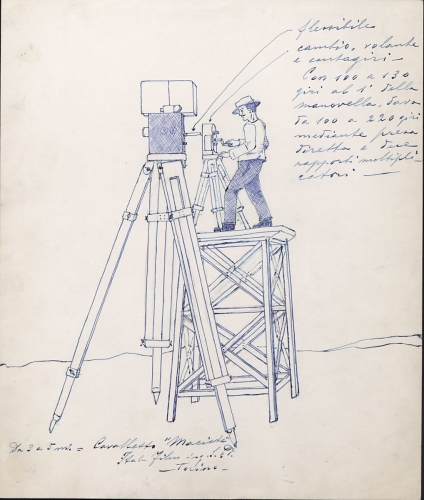 flessibile
cambio, volante
e contagiri —
Con 100 a 130
giri al 1' della
manovella, dava
da 100 a 220 giri
mediante presa
diretta e due
rapporti moltipli-
catori —
Da 3 a 5 mt. = Cavalletto "Maciste"
Itala Film
— Torino —